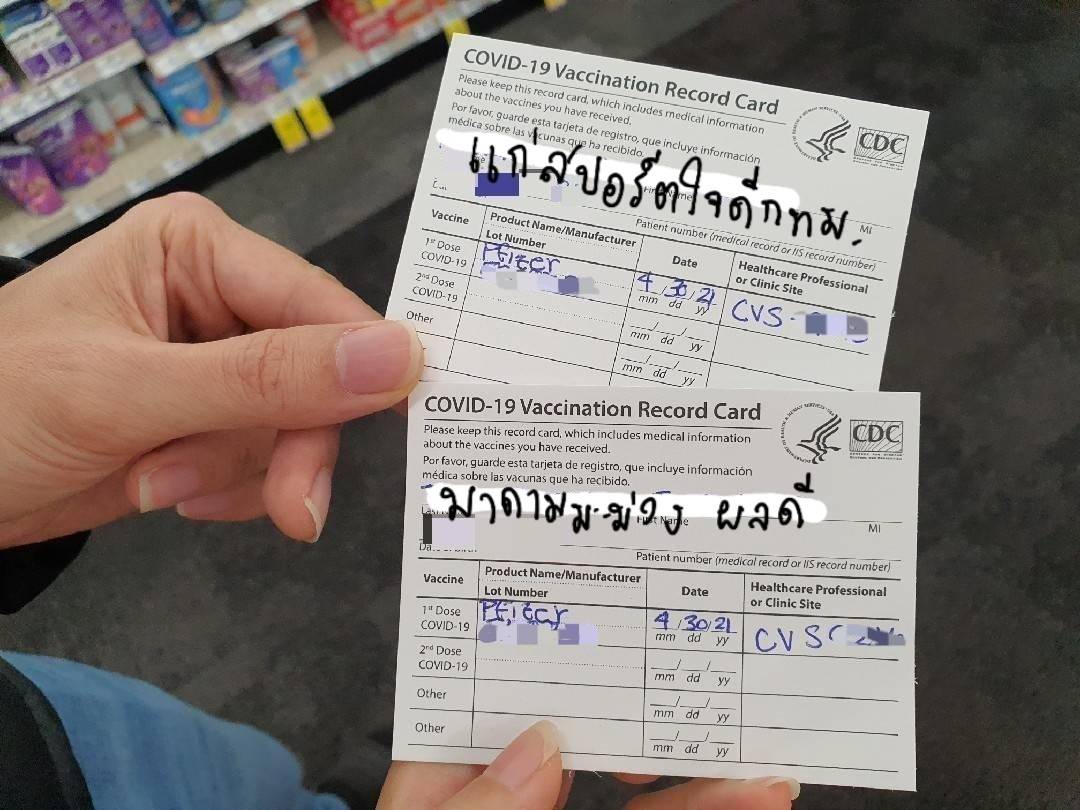 COVID-19 Vaccination Record Card
Please keep this record card, which includes medical information
about the vaccines you have received.
Por favor, guarde esta tarjeta de registro, que incluye información
médica sobre las vacunas que ha recibido.
CDC
แก่สปอร์ตใจดีกทม.
First Name
MI
Patient number (medical record or IIS record number)
Vaccine
Product Name/Manufacturer
Lot Number
Date
Healthcare Professional
or Clinic Site
1st Dose
COVID-19
Pfizer
4/30/21
mm dd yy
CVS-
2nd Dose
COVID-19
mm dd yy
Other
mm dd yy
COVID-19 Vaccination Record Card
Please keep this record card, which includes medical information
about the vaccines you have received.
Por favor, guarde esta tarjeta de registro, que incluye información
médica sobre las vacunas que ha recibido.
CDC
มาดามมะม่วง ผลดี
First Name
MI
Patient number (medical record or IIS record number)
Vaccine
Product Name/Manufacturer
Lot Number
Date
Healthcare Professional
or Clinic Site
1st Dose
COVID-19
Pfizer
4/30/21
mm dd yy
CVS
2nd Dose
COVID-19
mm dd yy
Other
mm dd yy
Other
mm dd yy